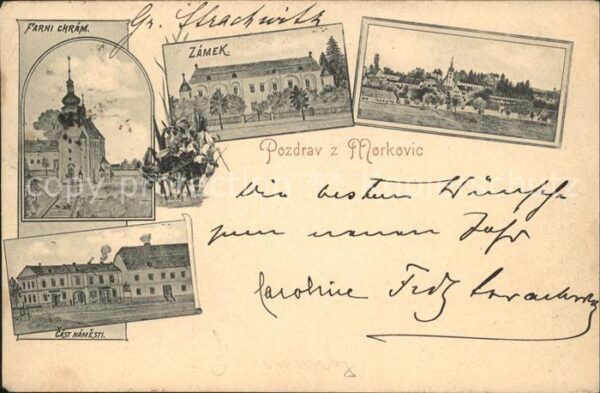 Gr. Strachwitz
FARNÍ CHRÁM.
ZÁMEK.
Pozdrav z Morkovic
Die besten Wünsche
zum neuen Jahr
Caroline
ČÁST NÁMĚSTÍ.